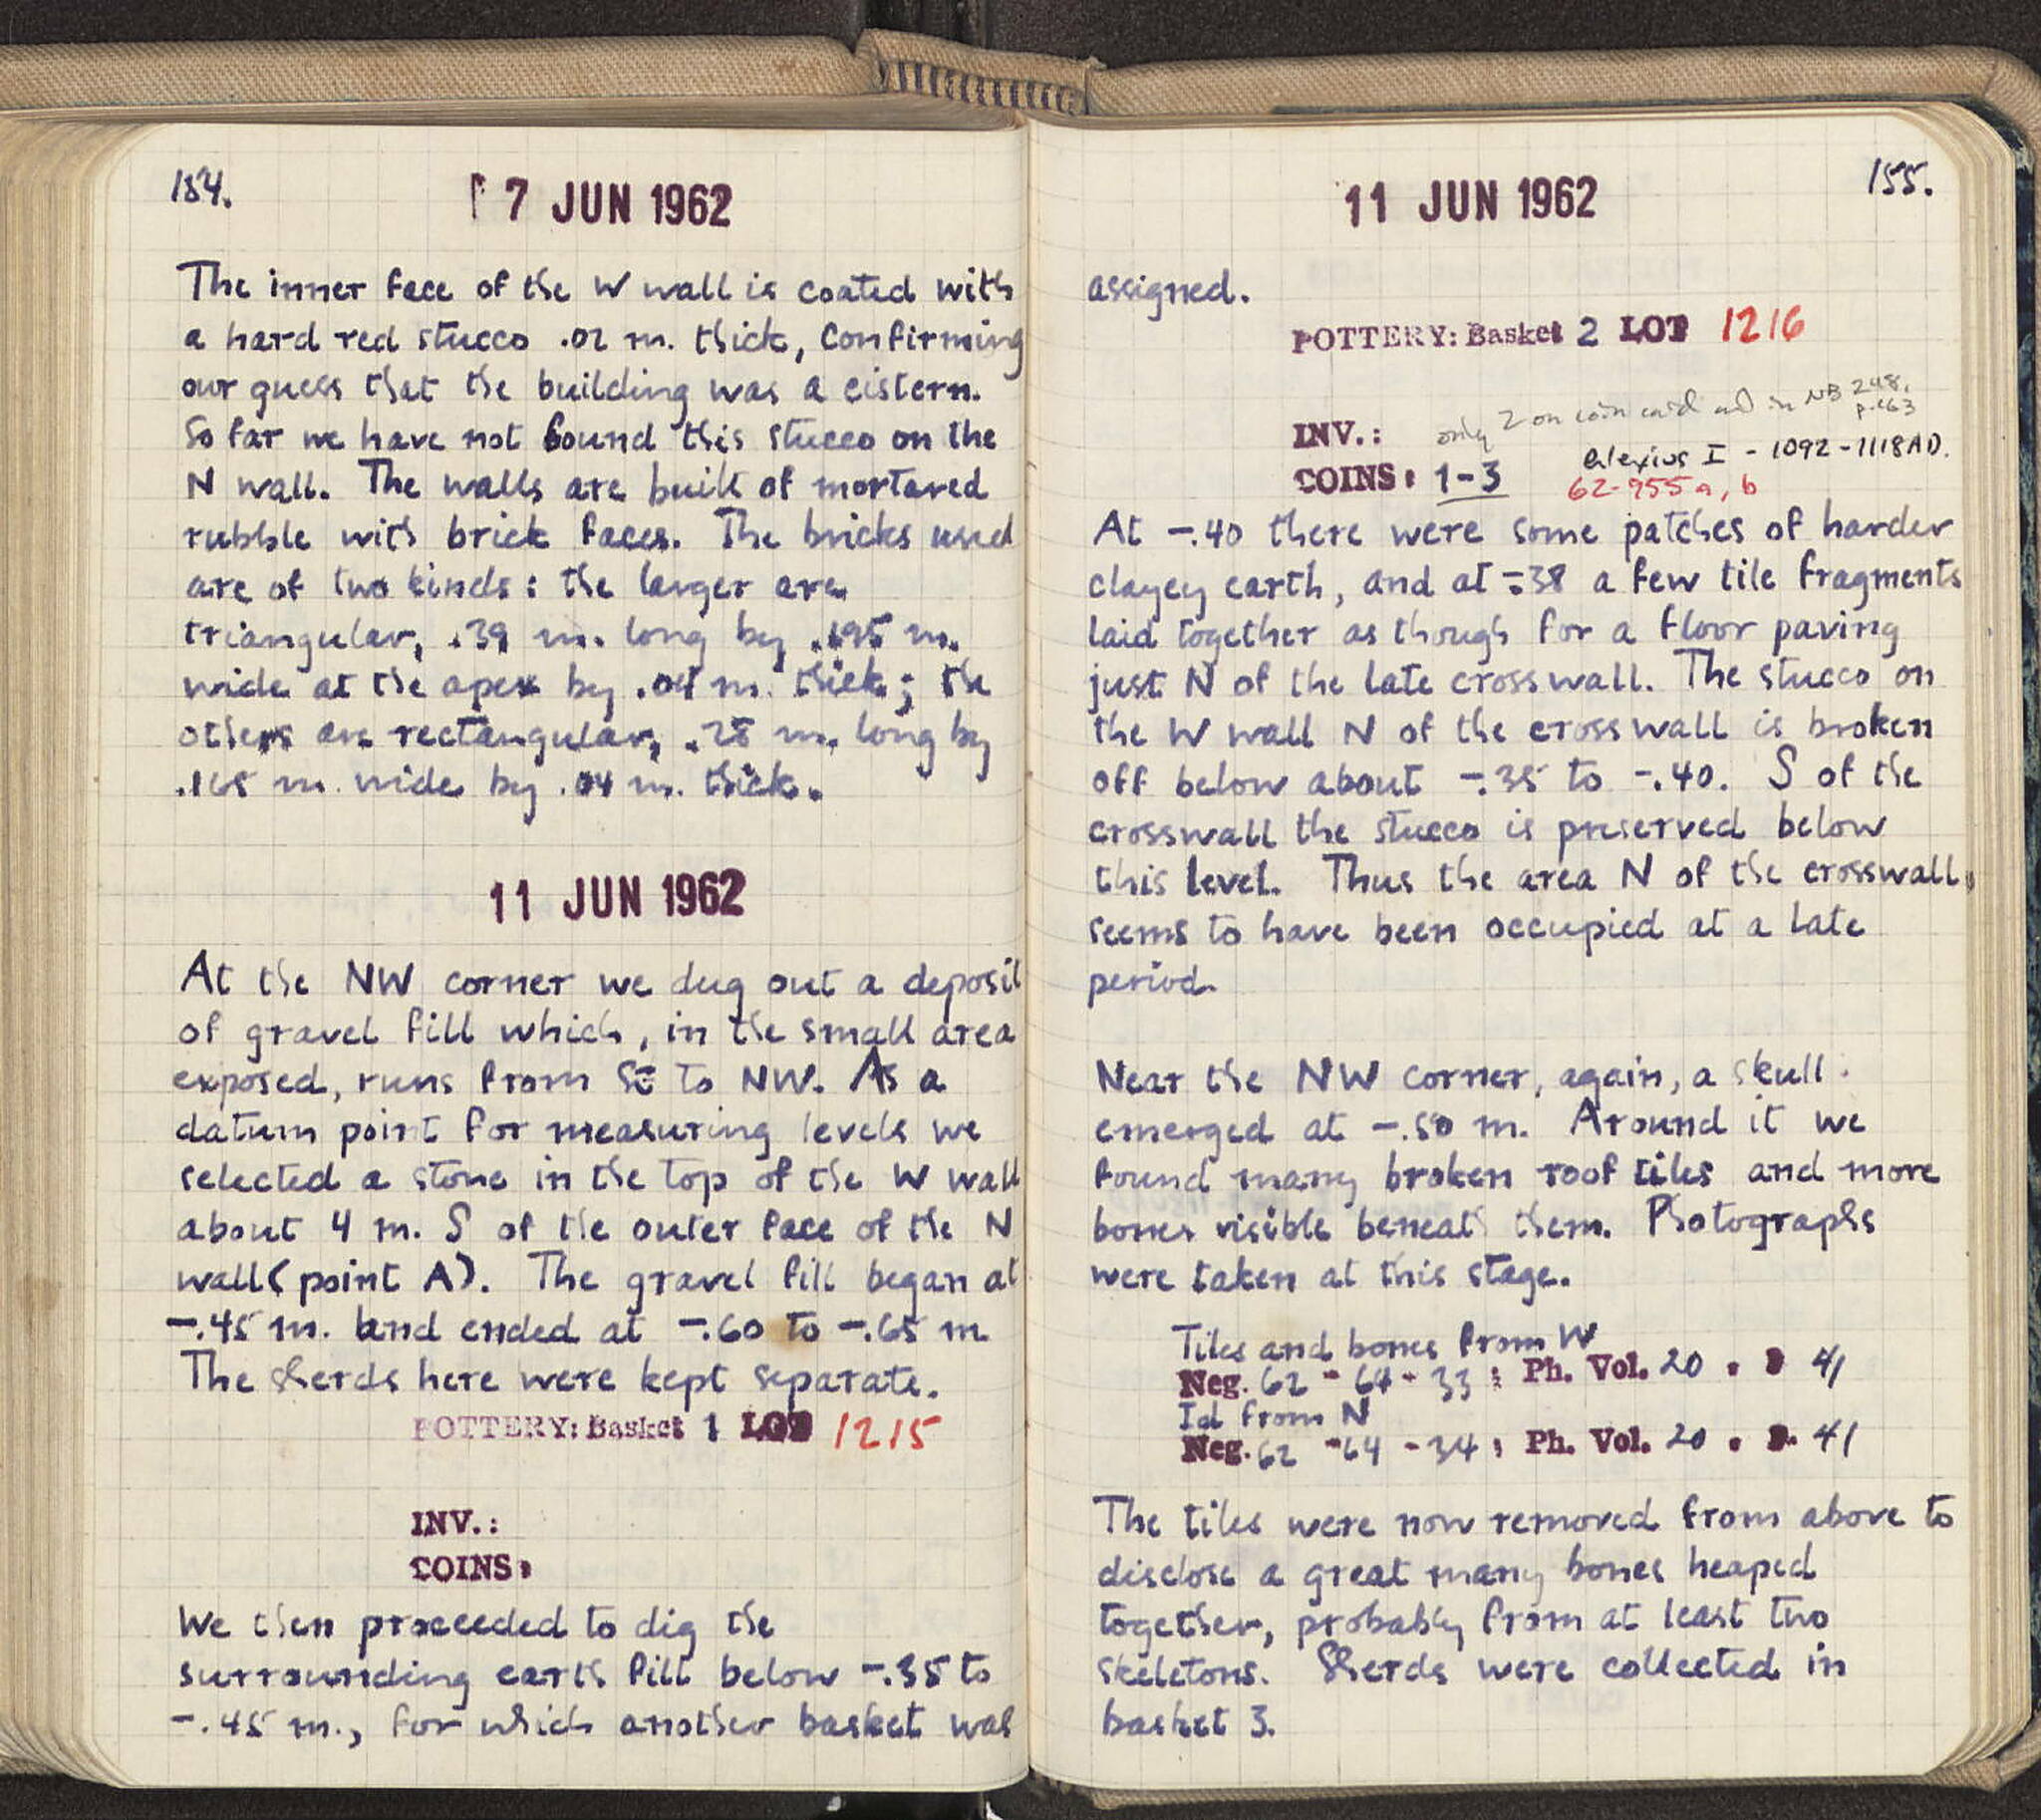 154.
7 JUN 1962
The inner face of the W wall is coated with
a hard red stucco .02 m. thick, confirming
our guess that the building was a cistern.
So far we have not found this stucco on the
N wall. The walls are built of mortared
rubble with brick faces. The bricks used
are of two kinds: the larger are
triangular, .39 m. long by .195 m.
wide at the apex by .04 m. thick; the
others are rectangular, .28 m. long by
.165 m. wide by .04 m. thick.
11 JUN 1962
At the NW corner we dug out a deposit
of gravel fill which, in the small area
exposed, runs from SE to NW. As a
datum point for measuring levels we
selected a stone in the top of the W wall
about 4 m. S of the outer face of the N
wall (point A). The gravel fill began at
-.45 m. and ended at -.60 to -.65 m
The sherds here were kept separate.
POTTERY: Basket 1 LOT 1215
INV.:
COINS:
We then proceeded to dig the
surrounding earth fill below -.35 to
-.45 m., for which another basket was
155.
11 JUN 1962
assigned.
POTTERY: Basket 2 LOT 1216
only 2 on coin card and in NB 248,
p. 163
INV.:
Alexius I - 1092-1118 AD.
COINS: 1-3
62-955 a, b
At -.40 there were some patches of harder
clayey earth, and at -.38 a few tile fragments
laid together as though for a floor paving
just N of the late crosswall. The stucco on
the W wall N of the crosswall is broken
off below about -.35 to -.40. S of the
crosswall the stucco is preserved below
this level. Thus the area N of the crosswall
seems to have been occupied at a late
period.
Near the NW corner, again, a skull
emerged at -.50 m. Around it we
found many broken roof tiles and more
bones visible beneath them. Photographs
were taken at this stage.
Tiles and bones from W
Neg. 62 - 64 - 33; Ph. Vol. 20 . P 41
Id from N
Neg. 62 - 64 - 34; Ph. Vol. 20 . P. 41
The tiles were now removed from above to
disclose a great many bones heaped
together, probably from at least two
skeletons. Sherds were collected in
basket 3.